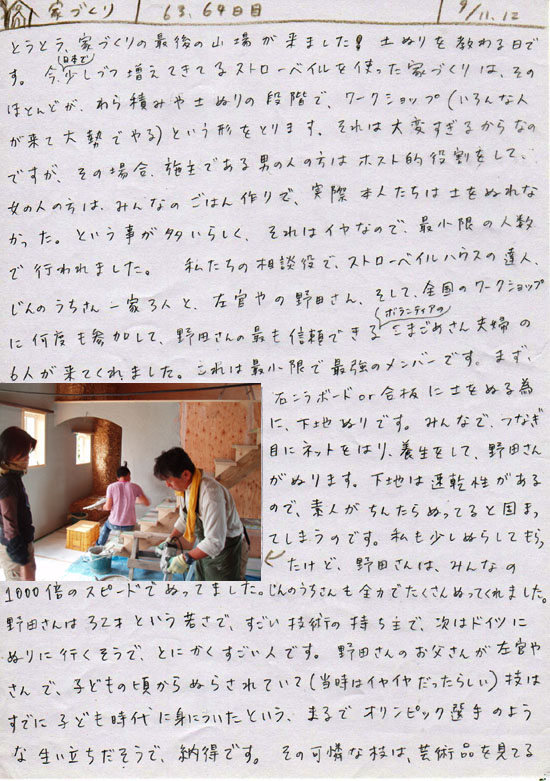 家づくり 63, 64日目 9/11, 12
とうとう、家づくりの最後の山場が来ました! 土ぬりを教わる日で
す。今、日本で少しづつ増えてきてるストローベイルを使った家づくりは、その
ほとんどが、わら積みや土ぬりの段階で、ワークショップ(いろんな人
が来て大勢でやる)という形をとります。それは大変すぎるからなの
ですが、その場合、施主である男の人の方はホスト的役割をして、
女の人の方は、みんなのごはん作りで、実際本人たちは土をぬれな
かった。という事が多いらしく、それはイヤなので、最小限の人数
で行われました。 私たちの相談役で、ストローベイルハウスの達人、
じんのうちさん一家3人と、左官やの野田さん、そして、全国のワークショップ
に何度も参加して、野田さんの最も信頼できるボランティアのこまごめさん夫婦の
6人が来てくれました。これは最小限で最強のメンバーです。まず、
石こうボードor合板に土をぬる為
に、下地ぬりです。みんなで、つなぎ
目にネットをはり、養生をして、野田さん
がぬります。下地は速乾性がある
ので、素人がちんたらぬってると固まっ
てしまうのです。私も少しぬらしてもらっ
たけど、野田さんは、みんなの
1000倍のスピードでぬってました。じんのうちさんも全力でたくさんぬってくれました。
野田さんは32才という若さで、すごい技術の持ち主で、次はドイツに
ぬりに行くそうで、とにかくすごい人です。野田さんのお父さんが左官や
さんで、子どもの頃からぬらされていて(当時はイヤイヤだったらしい)技は
すでに子ども時代に身についたという、まるでオリンピック選手のよう
な生い立ちだそうで、納得です。その可憐な技は、芸術品を見てる